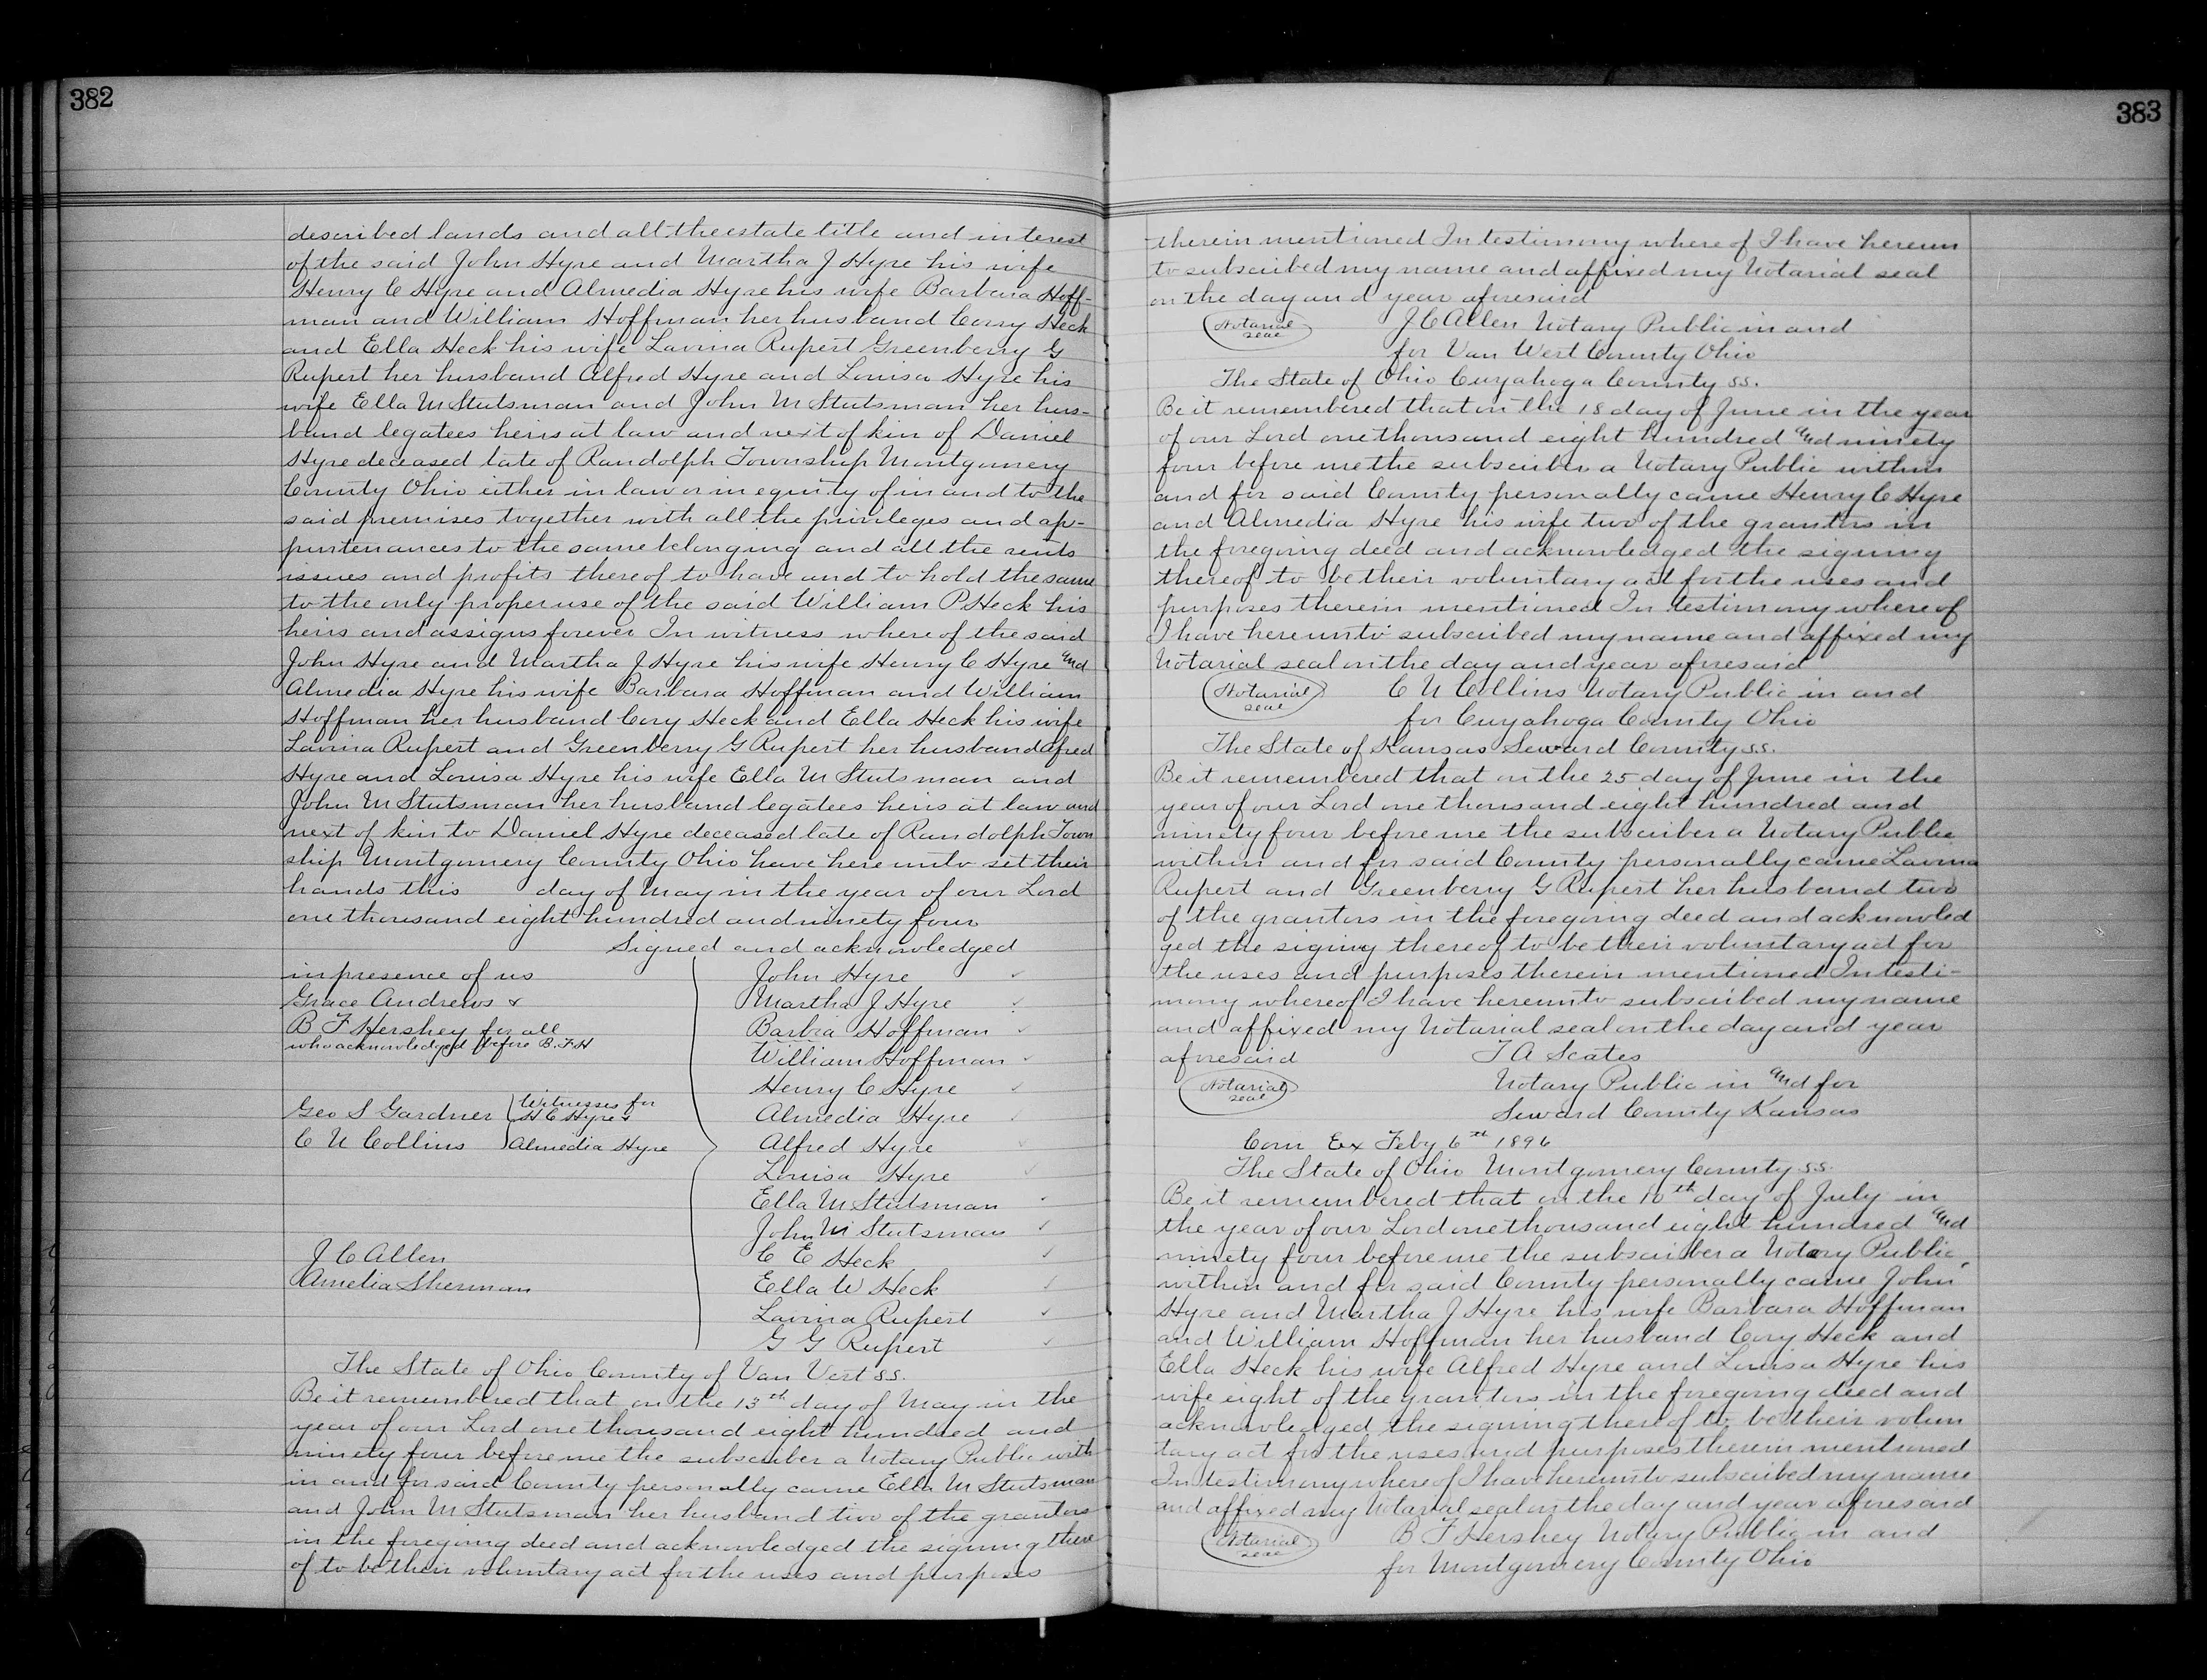 382
described lands and all the estate title and interest
of the said John Hyre and Martha J Hyre his wife
Henry C Hyre and Almedia Hyre his wife Barbara Hoff-
man and William Hoffman her husband Corry Heck
and Ella Heck his wife Lavina Rupert Greenberry G
Rupert her husband Alfred Hyre and Louisa Hyre his
wife Ella M Stutsman and John M Stutsman her hus-
band legatees heirs at law and next of kin of Daniel
Hyre deceased late of Randolph Township Montgomery
County Ohio either in law or in equity of in and to the
said premises together with all the privileges and ap-
purtenances to the same belonging and all the rents
issues and profits thereof to have and to hold the same
to the only proper use of the said William P Heck his
heirs and assigns forever In witness where of the said
John Hyre and Martha J Hyre his wife Henry C Hyre and
Almedia Hyre his wife Barbara Hoffman and William
Hoffman her husband Cory Heck and Ella Heck his wife
Lavina Rupert and Greenberry G Rupert her husband Alfred
Hyre and Louisa Hyre his wife Ella M Stutsman and
John M Stutsman her husband legatees heirs at law and
next of kin to Daniel Hyre deceased late of Randolph Town
ship Montgomery County Ohio have here unto set their
hands this day of May in the year of our Lord
one thousand eight hundred and ninety four
Signed and acknowledged
in presence of us John Hyre
Grace Andrews & Martha J Hyre
B F Hershey for all Barbra Hoffman
who acknowledged before B.F.H
William Hoffman
Henry C Hyre
Geo S Gardner Witnesses for H C Hyre & Almedia Hyre
C N Collins Almedia Hyre Alfred Hyre
Louisa Hyre
Ella M Stutsman
John M Stutsman
J C Allen C E Heck
Amelia Sherman Ella W Heck
Lavina Rupert
G G Rupert
The State of Ohio County of Van Vert ss.
Be it remembered that on the 13th day of May in the
year of our Lord one thousand eight hundred and
ninety four before me the subscriber a Notary Public with
in and for said County personally came Ella M Stutsman
and John M Stutsman her husband two of the grantors
in the foregoing deed and acknowledged the signing there
of to be their voluntary act for the uses and purposes
383
therein mentioned In testimony where of I have hereun
to subscribed my name and affixed my Notarial seal
on the day and year aforesaid
Notarial seal J C Allen Notary Public in and
for Van Wert County Ohio
The State of Ohio Cuyahoga County ss.
Be it remembered that on the 18 day of June in the year
of our Lord one thousand eight hundred and ninety
four before me the subscriber a Notary Public within
and for said County personally came Henry C Hyre
and Almedia Hyre his wife two of the grantors in
the foregoing deed and acknowledged the signing
thereof to be their voluntary act for the uses and
purposes therein mentioned In testimony where of
I have here unto subscribed my name and affixed my
Notarial seal on the day and year aforesaid
Notarial seal C N Collins Notary Public in and
for Cuyahoga County Ohio
The State of Kansas Seward County ss.
Be it remembered that on the 25 day of June in the
year of our Lord one thousand eight hundred and
ninety four before me the subscriber a Notary Public
within and for said County personally came Lavina
Rupert and Greenberry G Rupert her husband two
of the grantors in the foregoing deed and acknowled
ged the signing thereof to be their voluntary act for
the uses and purposes therein mentioned In testi-
mony whereof I have hereunto subscribed my name
and affixed my Notarial seal on the day and year
aforesaid T A Scates
Notarial seal Notary Public in and for
Seward County Kansas
Com Ex Feby 6th 1896
The State of Ohio Montgomery County ss.
Be it remembered that on the 10th day of July in
the year of our Lord one thousand eight hundred and
ninety four before me the subscriber a Notary Public,
within and for said County personally came John
Hyre and Martha J Hyre his wife Barbara Hoffman
and William Hoffman her husband Cory Heck and
Ella Heck his wife Alfred Hyre and Louisa Hyre his
wife eight of the grantors in the foregoing deed and
acknowledged the signing thereof to be their volun
tary act for the uses and purposes therein mentioned
In testimony where of I have hereunto subscribed my name
and affixed my Notarial seal on the day and year aforesaid
Notarial seal B F Hershey Notary Public in and
for Montgomery County Ohio